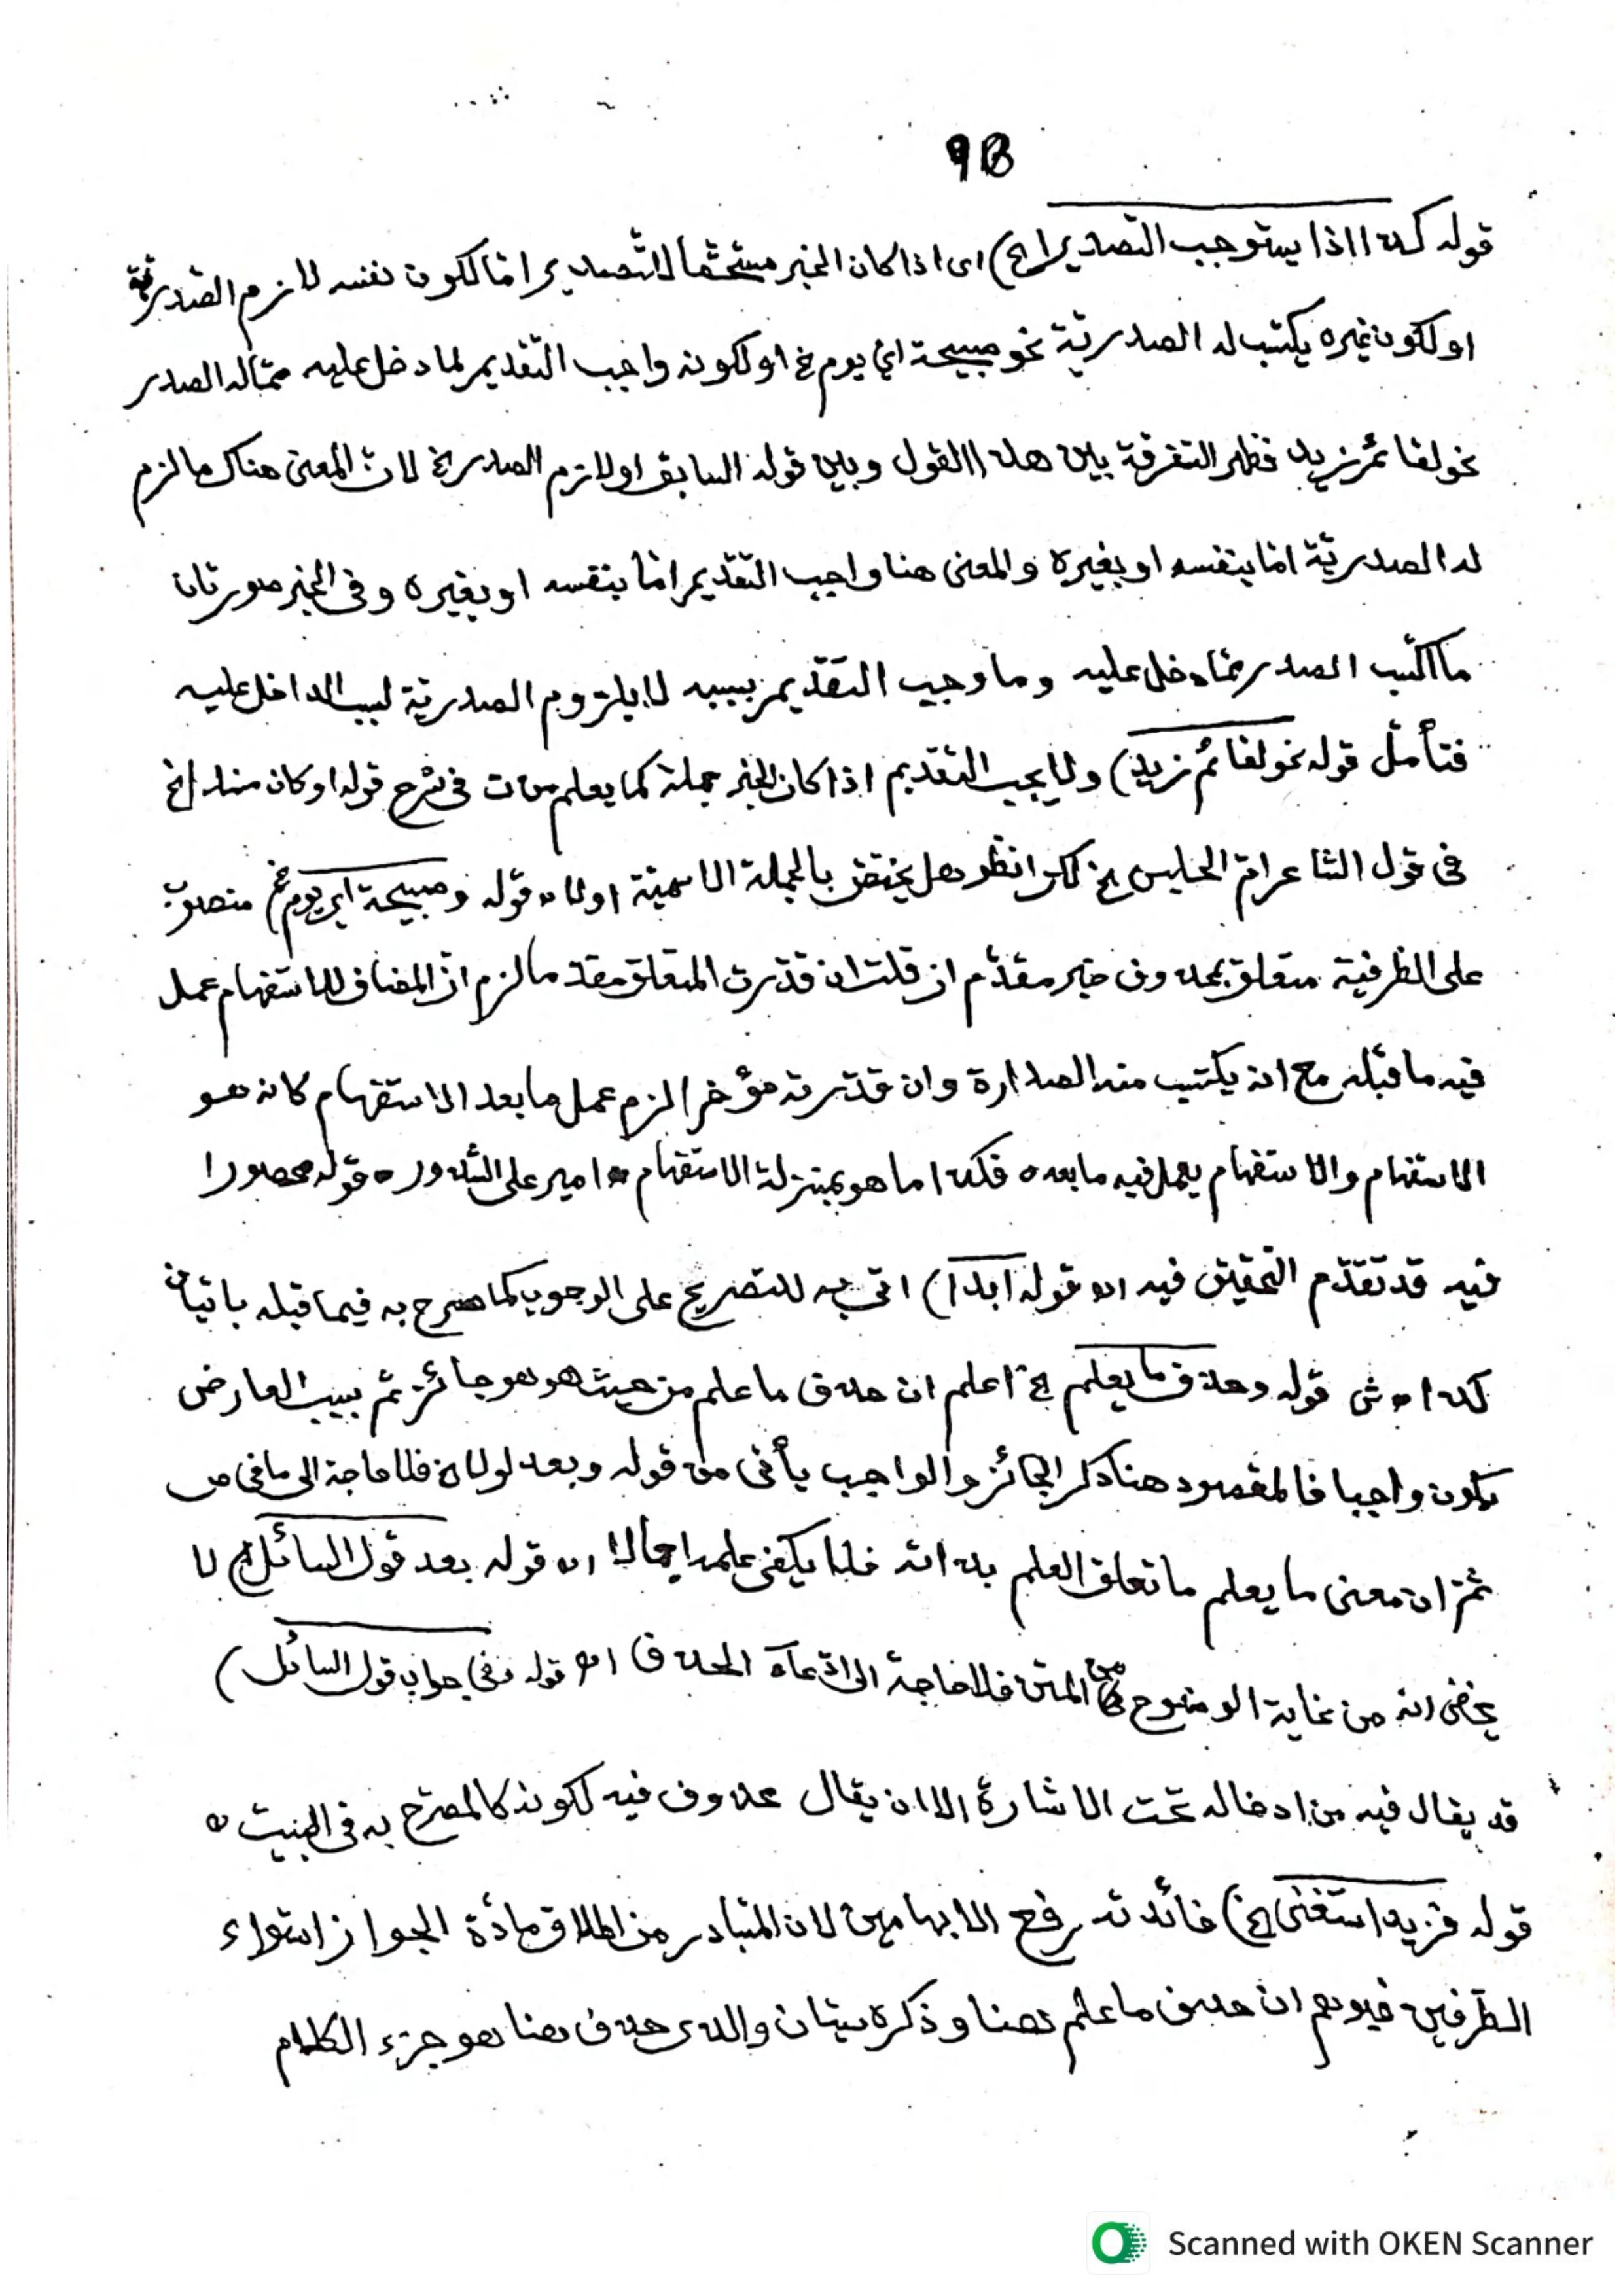 9B
قوله كذا اذا يستوجب التصديرا الخ) اى اذا كان الخبر مستحقا للتصدير اما لكون نفسه لازم الصدرية
او لكون غيره يكتسب له الصدرية نحو صبيحة اي يوم الخ او لكونه واجب التقديم لما دخل عليه مما له الصدر
نحو لقائم زيد فظهر التفرقة بين هذا القول وبين قوله السابق او لازم الصدر الخ لان المعنى هناك ما لزم
له الصدرية اما بنفسه او بغيره والمعنى هنا واجب التقديم اما بنفسه او بغيره وفى الخبر صورتان
ما اكتسب الصدر مما دخل عليه وما وجب التقديم بسببه لا يلزوم الصدرية لسبب الداخل عليه
فتأمل قوله نحو لقائم زيد) ولا يجب التقديم اذا كان الخبر جملة كما يعلم من ت فى شرح قوله او كان مسندا الخ
فى قول الشاعر ام الحليس الخ لكن انظر هل يختص بالجملة الاسمية او لا ه قوله وصبيحة اي يوم الخ) منصوب
على الظرفية متعلق بمحذوف خبر مقدم ان قلت ان قدرت المتعلق مقدما لزم ان المضاف للاستفهام عمل
فيه ما قبله مع انه يكتسب منه الصدارة وان قدرته مؤخرا لزم عمل ما بعد الاستفهام كانه هو
الاستفهام والاستفهام يعمل فيه ما بعده فكذا ما هو بمنزلة الاستفهام ه امير على الشذور ه قوله محصورا
فيه قد تقدم التحقيق فيه اه قوله ابدا) اتى به للتصريح على الوجوب كما صرح به فيما قبله باتيان
كذا ه ش قوله وحذف ما يعلم الخ اعلم ان حذف ما علم من حيث هو هو جائز ثم بسبب العارض
يكون واجبا فالمقصود هنا ذكر الجائز والواجب يأتى من قوله وبعد لولا الخ فلا حاجة الى ما فى ص
ثم ان معنى ما يعلم ما تعلق العلم بذاته فلا يكفى علمه اجمالا اه قوله بعد قول السائل الخ لا
يخفى انه من غاية الوضوح المتن فلا حاجة الى ادعآء الحذف اه قوله وفى جواب قول السائل)
قد يقال فيه من ادخاله تحت الاشارة الا ان يقال محذوف فيه لكونه كالمصرح به فى البيت ه
قوله فزيد استغنى الخ) فائدته رفع الابهامين لان المتبادر من اطلاق مادة الجواز استواء
الطرفين فيوهم ان حذف ما علم هنا وذكره سيان والذى حذف هنا هو جزء الكلام
Scanned with OKEN Scanner